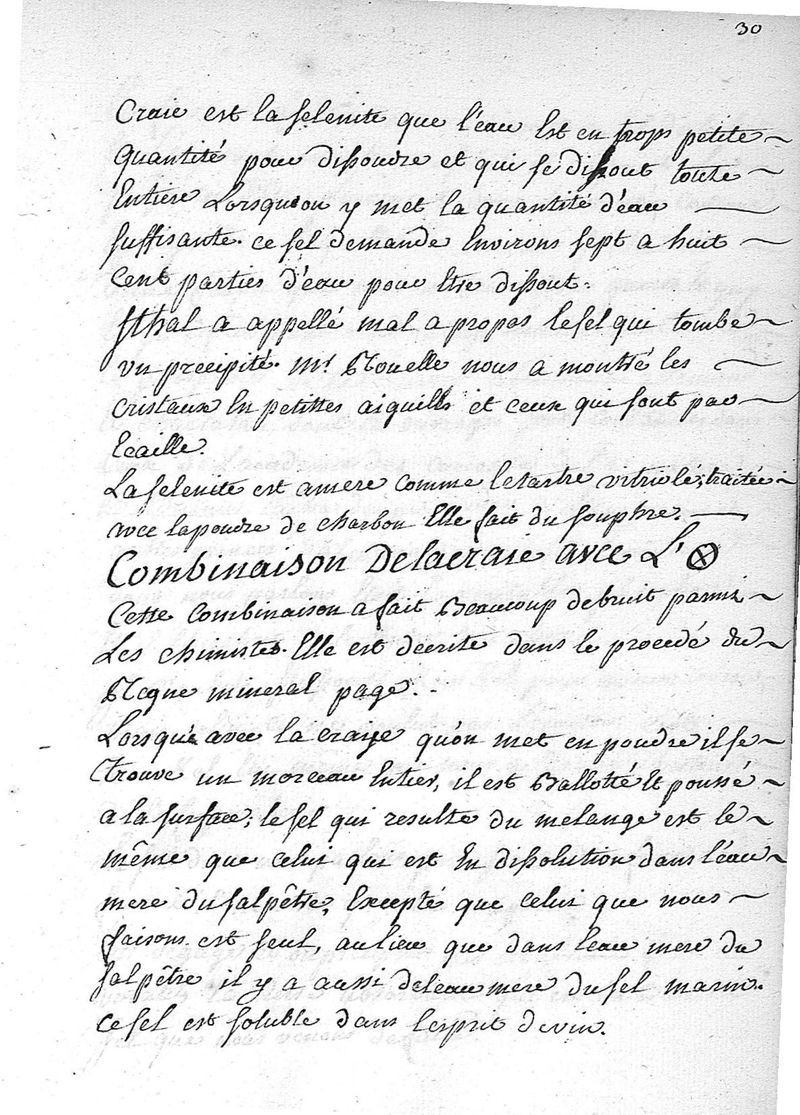 30
Craie est la selenite que l'eau Est en trops petite
quantité pour dissoudre et qui se dissout toute
Entiere Lorsquon y met la quantité d'eau
suffisante. ce sel demande Environs sept a huit
Cent parties d'eau pour Etre dissout.
Sthal a appellé mal a propos le sel qui tombe
un precipité. Mr. Rouelle nous a montré les
Cristaux En petittes aiguills et ceux qui sont par
Ecaille.
La selenite est amere comme le tartre vitriolé; traitée
avec la poudre de charbon Elle fait du souphre.
Combinaison De la craie avec L'⊗
Cette Combinaison a fait Beaucoup de bruit parmi
Les chimistes. Elle est decrite dans le procedé du
Regne mineral page..
Lorsqu'avec la craye qu'on met en poudre il se
trouve un morceau Entier, il est Ballotté Et poussé
a la surface; le sel qui resulte du melange est le
même que celui qui est En dissolution dans l'eau
mere du salpêtre, Excepté que celui que nous
faisons est seul, au lieu que dans l'eau mere du
salpêtre il y a aussi de l'eau mere du sel marin.
Ce sel est soluble dans l'esprit de vin.